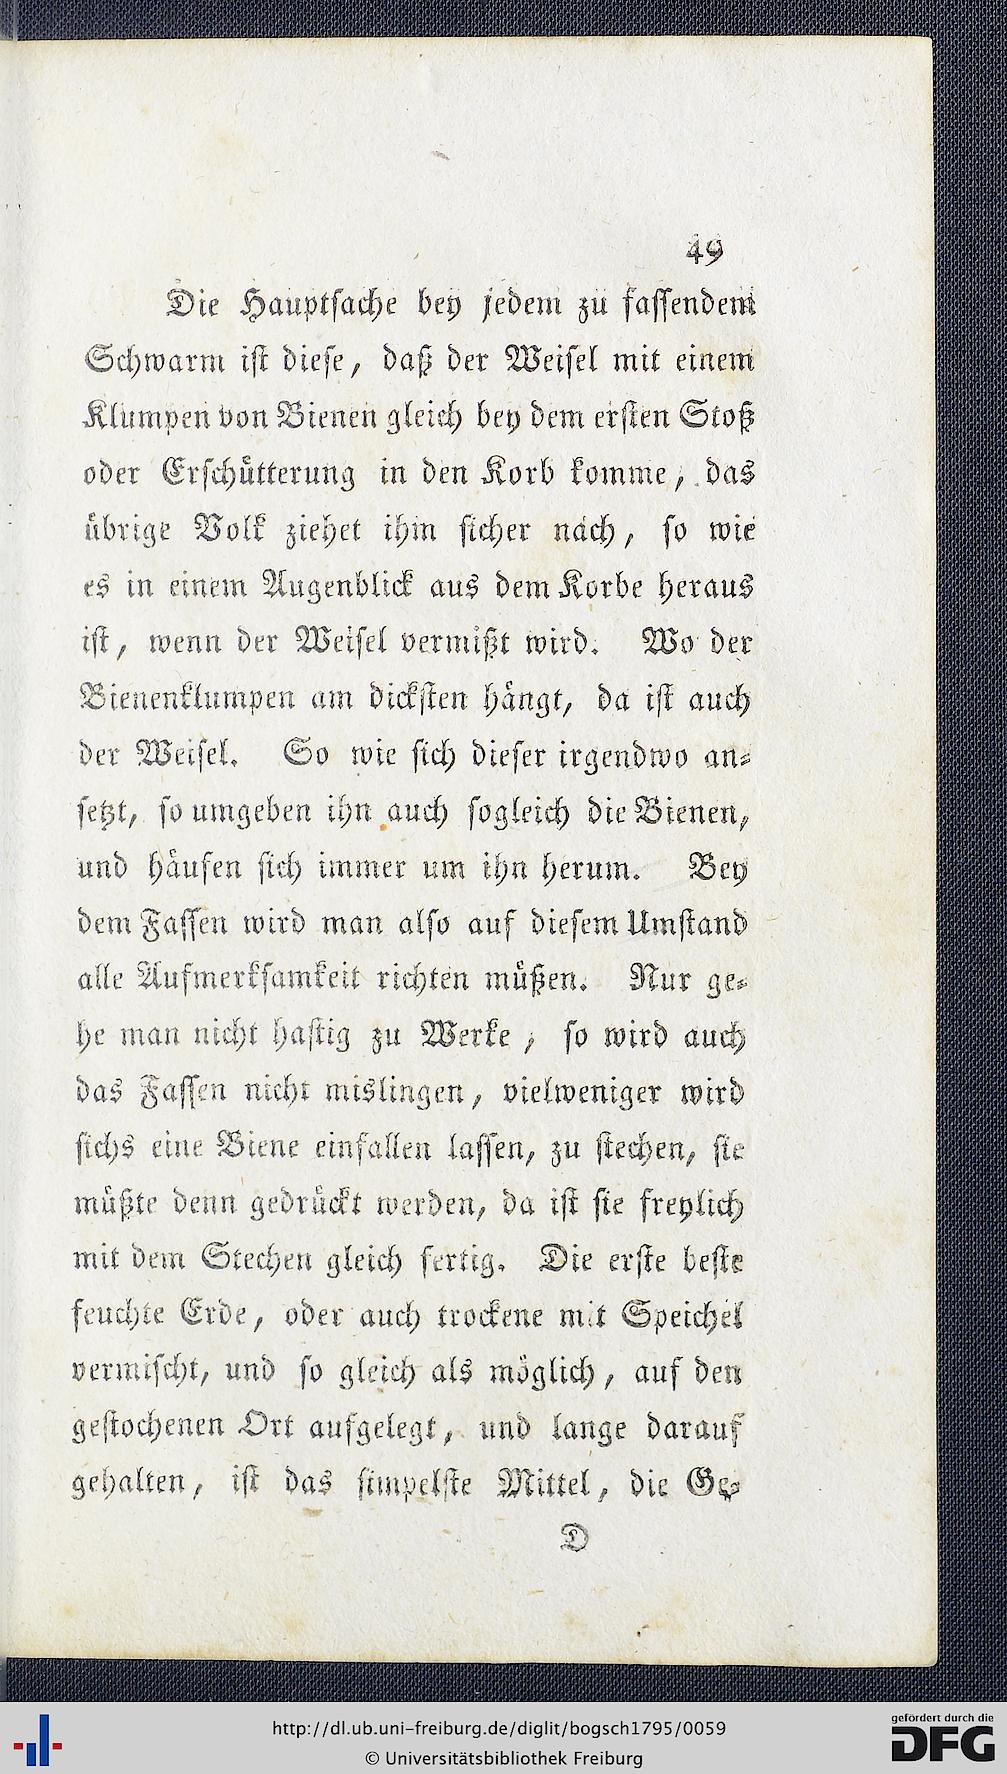 49
Die Hauptsache bey jedem zu fassendem
Schwarm ist diese, daß der Weisel mit einem
Klumpen von Bienen gleich bey dem ersten Stoß
oder Erschütterung in den Korb komme, das
übrige Volk ziehet ihm sicher nach, so wie
es in einem Augenblick aus dem Korbe heraus
ist, wenn der Weisel vermißt wird. Wo der
Bienenklumpen am dicksten hängt, da ist auch
der Weisel. So wie sich dieser irgendwo an-
setzt, so umgeben ihn auch sogleich die Bienen,
und häufen sich immer um ihn herum. Bey
dem Fassen wird man also auf diesem Umstand
alle Aufmerksamkeit richten müßen. Nur ge-
he man nicht hastig zu Werke, so wird auch
das Fassen nicht mislingen, vielweniger wird
sichs eine Biene einfallen lassen, zu stechen, sie
müßte denn gedrückt werden, da ist sie freylich
mit dem Stechen gleich fertig. Die erste beste
feuchte Erde, oder auch trockene mit Speichel
vermischt, und so gleich als möglich, auf den
gestochenen Ort aufgelegt, und lange darauf
gehalten, ist das simpelste Mittel, die Ge-
D
http://dl.ub.uni-freiburg.de/diglit/bogsch1795/0059
© Universitätsbibliothek Freiburg
gefördert durch die
DFG